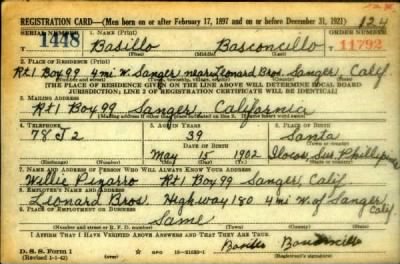 REGISTRATION CARD—(Men born on or after February 17, 1897 and on or before December 31, 1921) 124
SERIAL NUMBER 1. NAME (Print) ORDER NUMBER
1448 Basillo Basconcillo 11792
(First) (Middle) (Last)
2. PLACE OF RESIDENCE (Print)
Rt 1 Box 99 4 mi w. Sanger near Leonard Bros. Sanger, Calif.
(Number and street) (Town, township, village, or city) (County) (State)
[THE PLACE OF RESIDENCE GIVEN ON THE LINE ABOVE WILL DETERMINE LOCAL BOARD
JURISDICTION; LINE 2 OF REGISTRATION CERTIFICATE WILL BE IDENTICAL]
3. MAILING ADDRESS
Rt 1 Box 99 Sanger, California
[Mailing address if other than place indicated on line 2. If same insert word same]
4. TELEPHONE 5. AGE IN YEARS 6. PLACE OF BIRTH
78 J 2 39 Santa
DATE OF BIRTH (Town or county)
May 15 1902 Ilocos Sur Phillipine
(Exchange) (Number) (Mo.) (Day) (Yr.) (State or country)
7. NAME AND ADDRESS OF PERSON WHO WILL ALWAYS KNOW YOUR ADDRESS
Willie Pizarro Rt 1 Box 99 Sanger, Calif
8. EMPLOYER'S NAME AND ADDRESS
Leonard Bros. Highway 180 4 mi w. of Sanger, Calif
9. PLACE OF EMPLOYMENT OR BUSINESS
Same
(Number and street or R. F. D. number) (Town) (County) (State)
I AFFIRM THAT I HAVE VERIFIED ABOVE ANSWERS AND THAT THEY ARE TRUE.
D. S. S. Form 1 GPO 16—21630-1 Basillo Basconcillo
(Revised 1-1-42) (Registrant's signature)